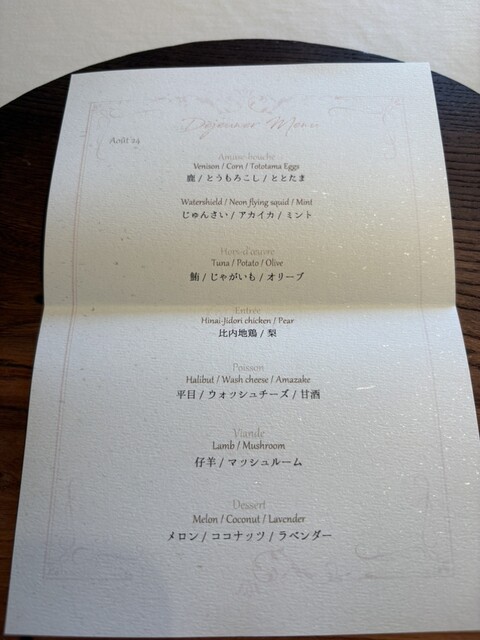 Déjeuner Menu
Août 24
Amuse-bouche
Venison / Corn / Tototama Eggs
鹿 / とうもろこし / ととたま
Watershield / Neon flying squid / Mint
じゅんさい / アカイカ / ミント
Hors-d'œuvre
Tuna / Potato / Olive
鮪 / じゃがいも / オリーブ
Entrée
Hinai-Jidori chicken / Pear
比内地鶏 / 梨
Poisson
Halibut / Wash cheese / Amazake
平目 / ウォッシュチーズ / 甘酒
Viande
Lamb / Mushroom
仔羊 / マッシュルーム
Dessert
Melon / Coconut / Lavender
メロン / ココナッツ / ラベンダー